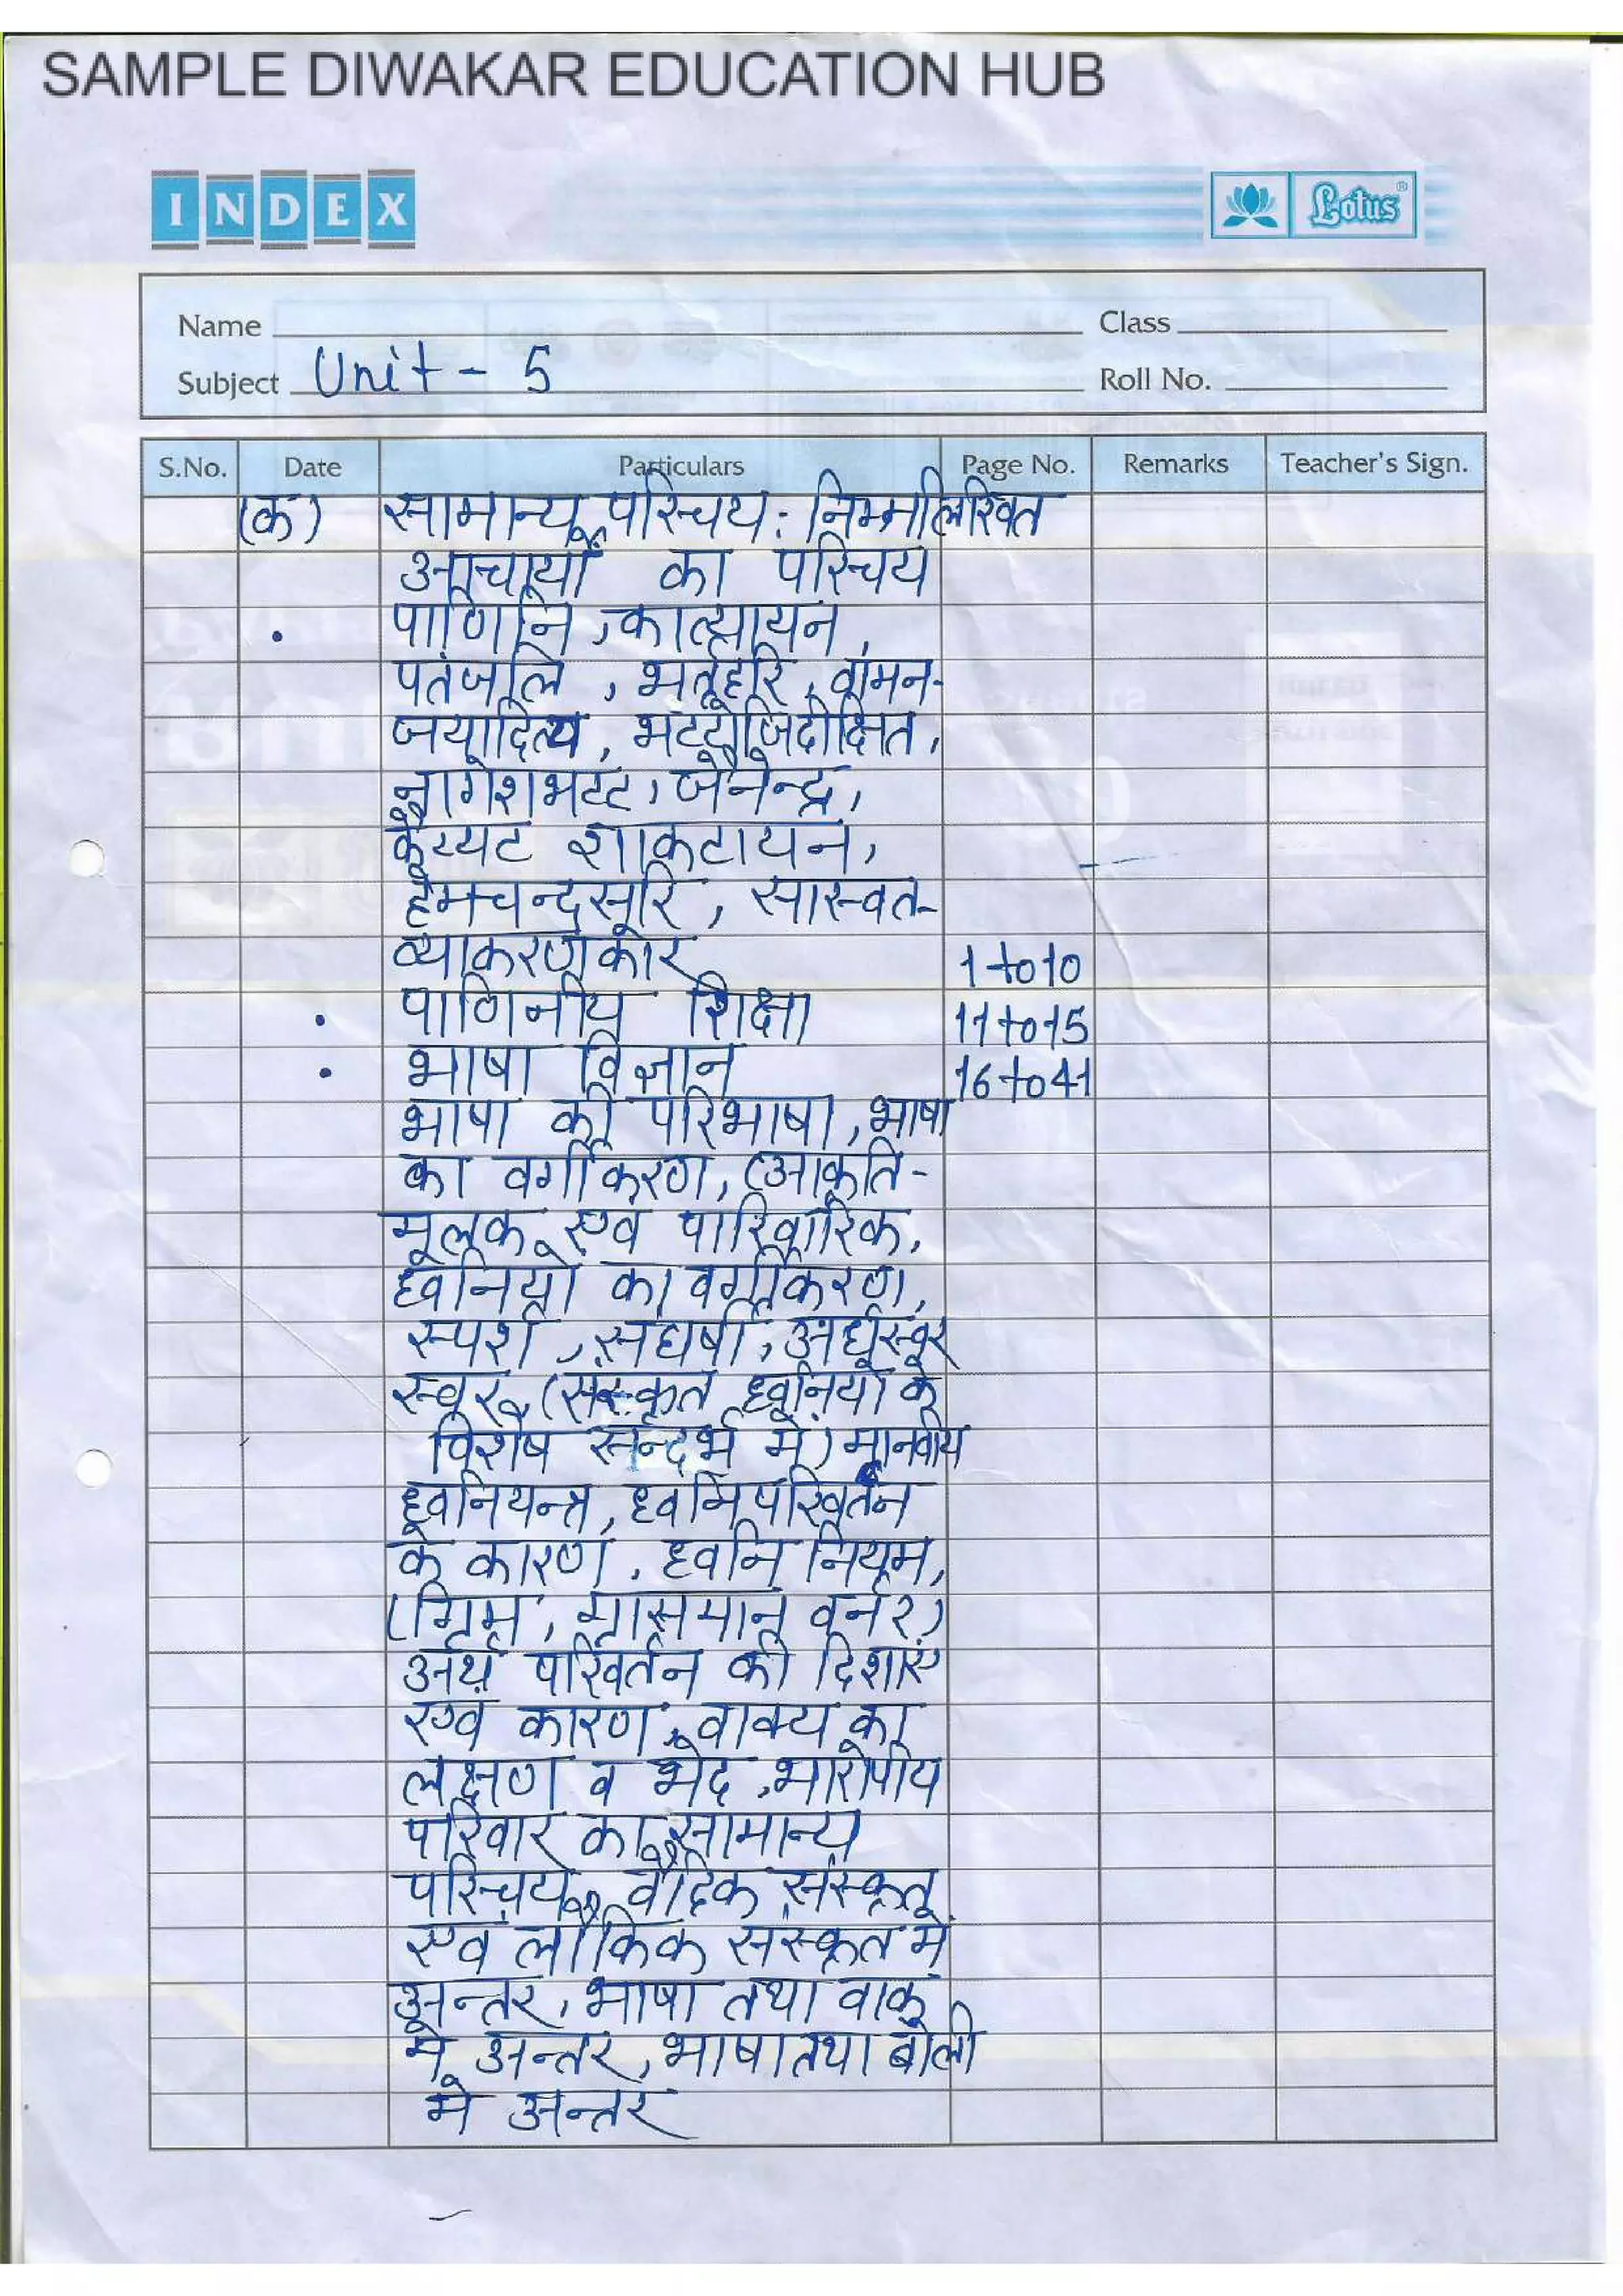 SAMPLE DIWAKAR EDUCATION HUB
INDEX
Lotus®
Name Class
Subject Unit - 5 Roll No.
S.No. Date Particulars Page No. Remarks Teacher's Sign.
(क) सामान्य परिचय: निम्नलिखित
आचार्यों का परिचय
• पाणिनि, कात्यायन,
पतंजलि, भर्तृहरि, वामन-
जयादित्य, भट्टोजिदीक्षित,
नागेशभट्ट, जैनेन्द्र,
कैय्यट शाकटायन,
हेमचन्द्रसूरि, सारस्वत-
व्याकरणकार 1 to 10
• पाणिनीय शिक्षा 11 to 15
• भाषा विज्ञान 16 to 41
भाषा की परिभाषा, भाषा
का वर्गीकरण, (आकृति-
मूलक एवं पारिवारिक,
ध्वनियों का वर्गीकरण,
स्पर्श, संघर्षी, अर्धस्वर
स्वर (संस्कृत ध्वनियों के
विशेष सन्दर्भ में) मानवीय
ध्वनियन्त्र, ध्वनि परिवर्तन
के कारण, ध्वनि नियम,
(ग्रिम, ग्रासमान वर्नर)
अर्थ परिवर्तन की दिशाएं
एवं कारण, वाक्य का
लक्षण व भेद, भारोपीय
परिवार का सामान्य
परिचय, वैदिक संस्कृत
एवं लौकिक संस्कृत में
अन्तर, भाषा तथा वाक्
में अन्तर, भाषा तथा बोली
में अन्तर